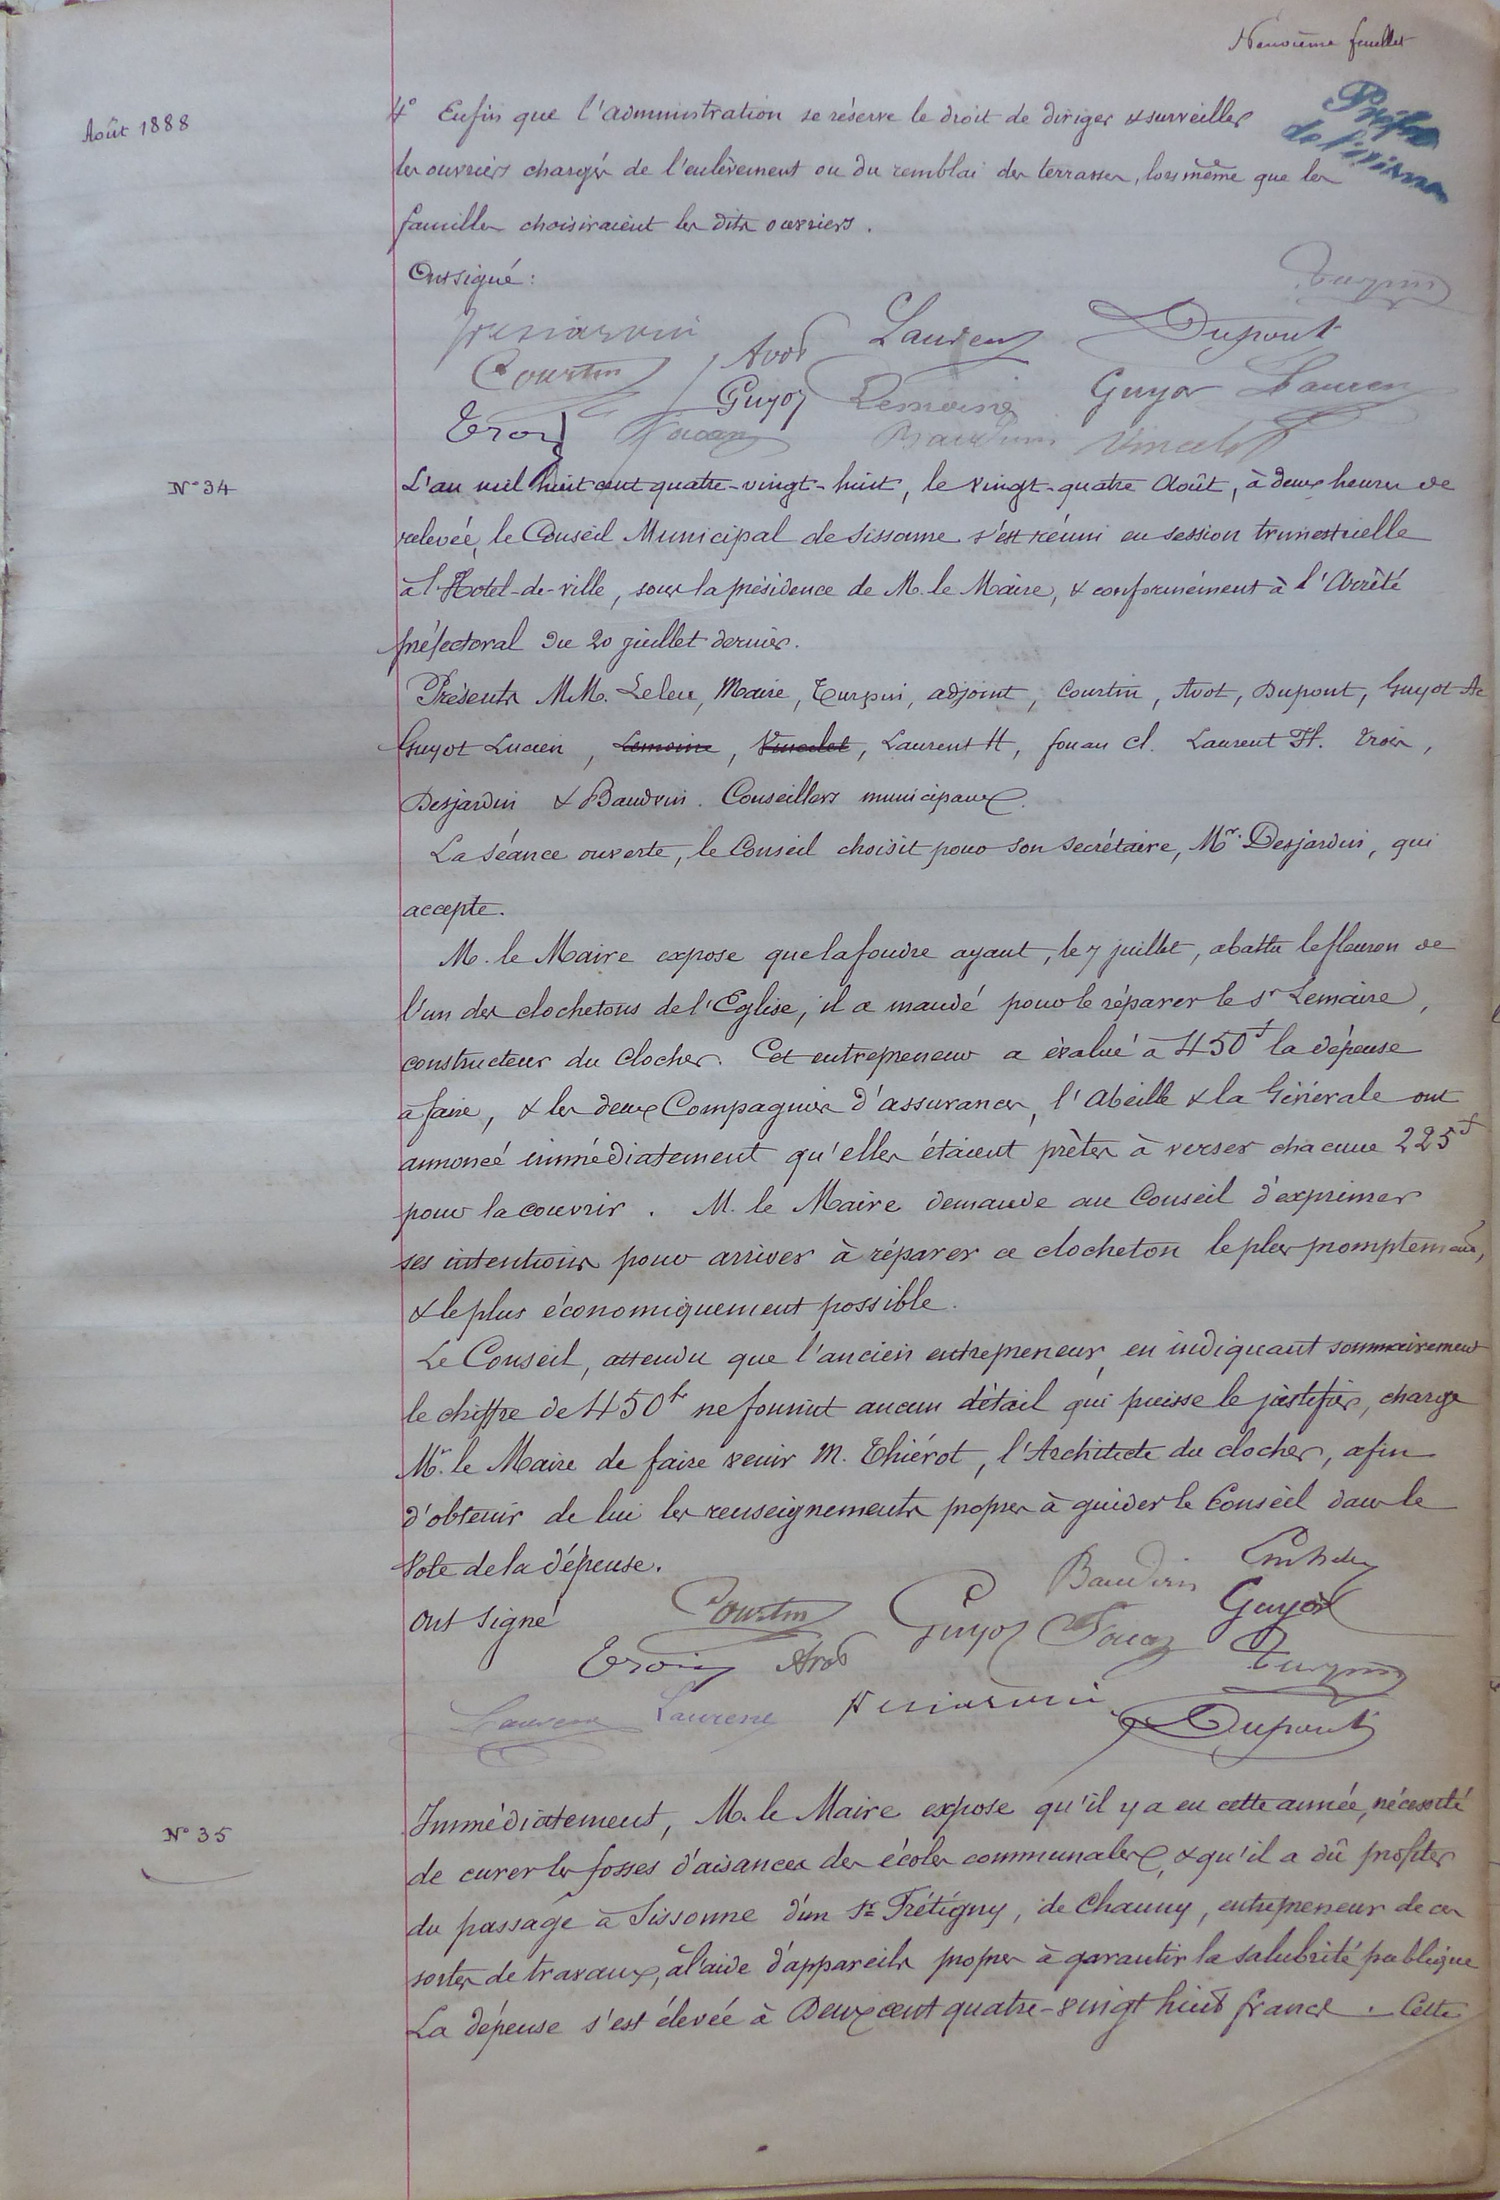 Neuvième feuillet
Août 1888
4° Enfin que l'administration se réserve le droit de diriger & surveiller
les ouvriers chargés de l'enlèvement ou du remblai des terrasses, lors même que les
familles choisiraient les dits ouvriers.
Ont signé :
Turpin
Desjardin Avot Laurent Dupont
Courtin Guyot Lemoine Guyot Laurent
Troin Fouan Baudvin Vincelet
N° 34
L'an mil huit cent quatre-vingt-huit, le vingt-quatre Août, à deux heures de
relevée, le Conseil Municipal de Sissonne s'est réuni en session trimestrielle
à l'Hotel-de-ville, sous la présidence de M. le Maire, & conformément à l'Arrêté
préfectoral du 20 juillet dernier.
Présents MM. Leleu, Maire, Turpin, adjoint, Courtin, Avot, Dupont, Guyot
Guyot Lucien, Lemoine, Vincelet, Laurent H, fouan cl. Laurent Th. Troin,
Desjardin & Baudvin. Conseillers municipaux.
La séance ouverte, le Conseil choisit pour son secrétaire, Mr. Desjardin, qui
accepte.
M. le Maire expose que la foudre ayant, le 7 juillet, abattu le fleuron de
l'un des clochetons de l'Eglise, il a mandé pour le réparer le sr Lemaire,
constructeur du clocher. Cet entrepreneur a évalué à 450f la dépense
à faire, & les deux Compagnies d'assurances, l'Abeille & la Générale ont
annoncé immédiatement qu'elles étaient prêtes à verser chacune 225f
pour la couvrir. M. le Maire demande au Conseil d'exprimer
ses intentions pour arriver à réparer ce clocheton le plus promptement,
& le plus économiquement possible.
Le Conseil, attendu que l'ancien entrepreneur, en indiquant sommairement
le chiffre de 450f ne fournit aucun détail qui puisse le justifier, charge
Mr. le Maire de faire venir M. Thiérot, l'Architecte du clocher, afin
d'obtenir de lui les renseignements propres à guider le Conseil dans le
vote de la dépense.
Ont signé
Courtin Guyot Baudvin Fouan Guyot
Troin Avot Turpin
Laurent Laurent Desjardin Dupont
N° 35
Immédiatement, M. le Maire expose qu'il y a eu cette année, nécessité
de curer les fosses d'aisances des écoles communales, & qu'il a dû profiter
du passage à Sissonne d'un Sr Frétigny, de Chauny, entrepreneur de ces
sortes de travaux, à l'aide d'appareils propres à garantir la salubrité publique
La dépense s'est élevée à Deux cent quatre-vingt huit francs. Cette